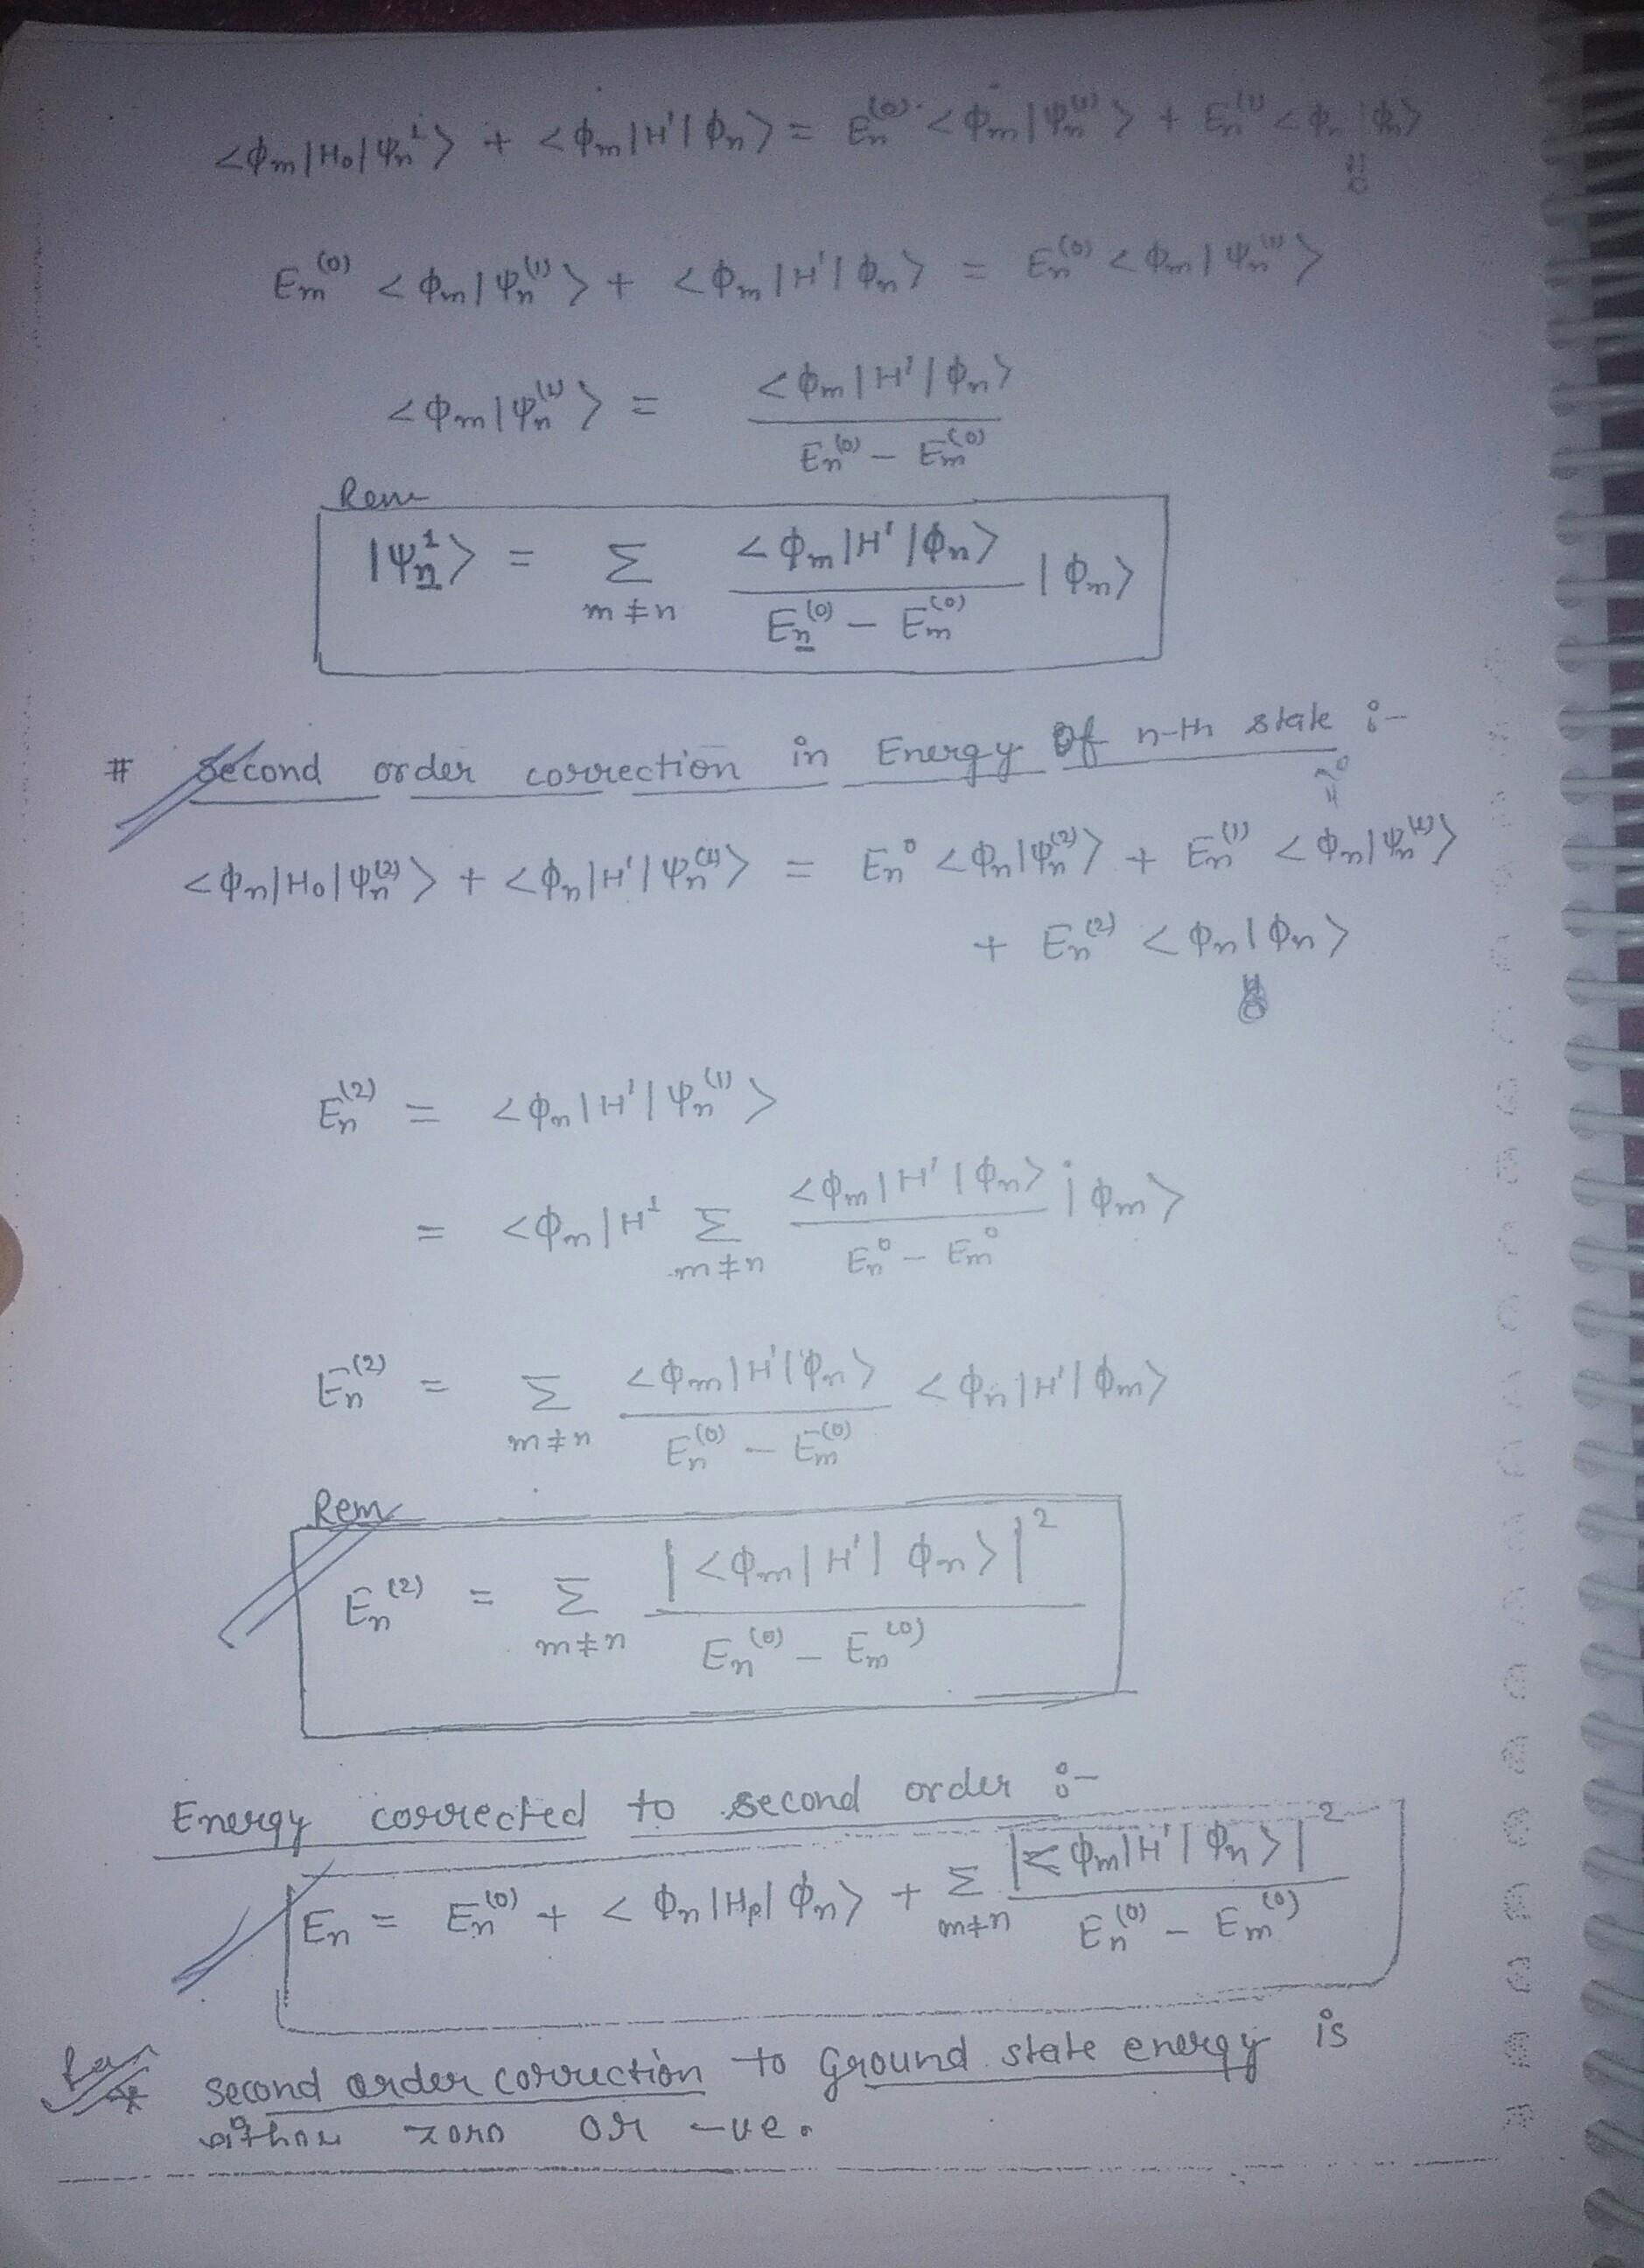 <Φm|H₀|Ψn¹> + <Φm|H'|Φn> = En⁽⁰⁾ <Φm|Ψn⁽¹⁾> + En⁽¹⁾ <Φn|Φn>
Em⁽⁰⁾ <Φm|Ψn⁽¹⁾> + <Φm|H'|Φn> = En⁽⁰⁾ <Φm|Ψn⁽¹⁾>
<Φm|Ψn⁽¹⁾> = <Φm|H'|Φn> / En⁽⁰⁾ – Em⁽⁰⁾
Rem
|Ψn¹> = Σ m≠n <Φm|H'|Φn> / En⁽⁰⁾ – Em⁽⁰⁾ |Φm>
# Second order correction in Energy of n-th state :-
<Φn|H₀|Ψn⁽²⁾> + <Φn|H'|Ψn⁽¹⁾> = En⁰ <Φn|Ψn⁽²⁾> + En⁽¹⁾ <Φn|Ψn⁽¹⁾> = 0
+ En⁽²⁾ <Φn|Φn>
En⁽²⁾ = <Φn|H'|Ψn⁽¹⁾>
= <Φn|H¹ Σ m≠n <Φm|H'|Φn> / En⁰ – Em⁰ |Φm>
En⁽²⁾ = Σ m≠n <Φm|H'|Φn> / En⁽⁰⁾ – Em⁽⁰⁾ <Φn|H'|Φm>
Rem
En⁽²⁾ = Σ m≠n |<Φm|H'|Φn>|² / En⁽⁰⁾ – Em⁽⁰⁾
Energy corrected to second order :-
En = En⁽⁰⁾ + <Φn|Hp|Φn> + Σ m≠n |<Φm|H'|Φn>|² / En⁽⁰⁾ – Em⁽⁰⁾
second order correction to Ground state energy is
either zero or -ve.